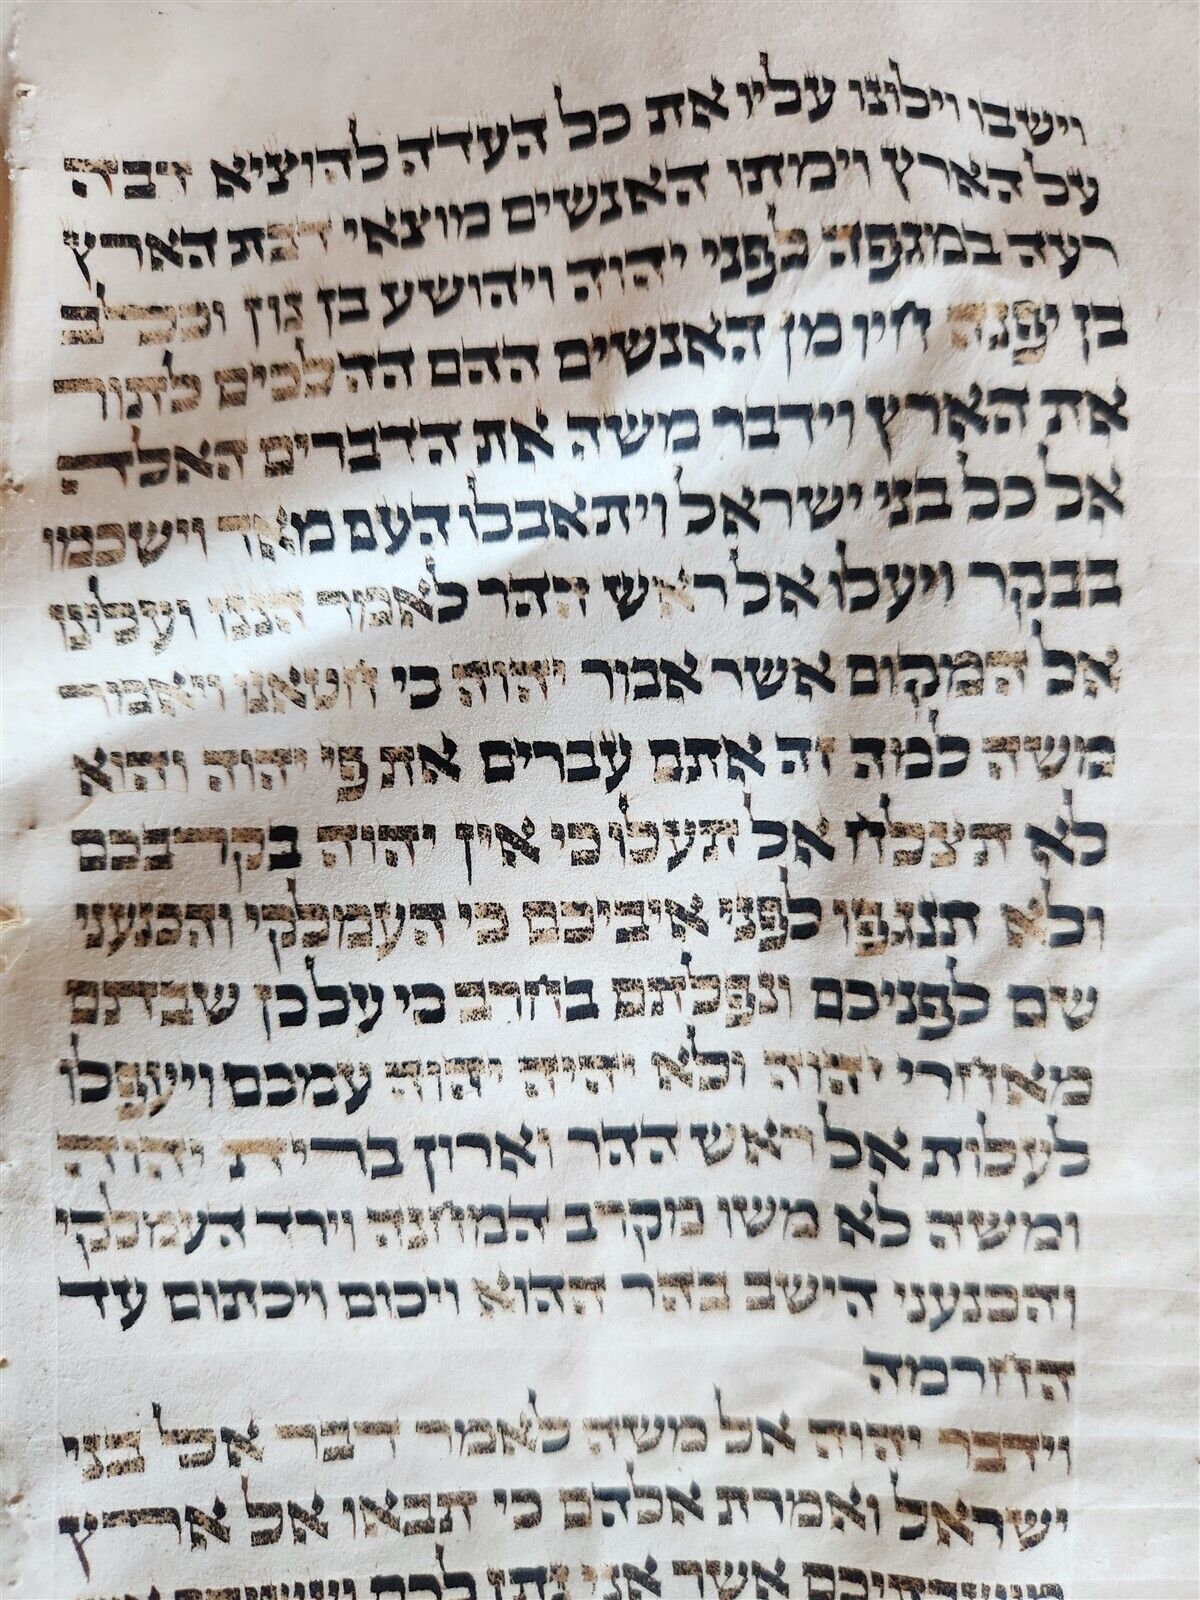 וישבו וילונו עליו את כל העדה להוציא דבה
על הארץ וימתו האנשים מוצאי דבת הארץ
רעה במגפה לפני יהוה ויהושע בן נון וכלב
בן יפנה חיו מן האנשים ההם ההלכים לתור
את הארץ וידבר משה את הדברים האלה
אל כל בני ישראל ויתאבלו העם מאד וישכמו
בבקר ויעלו אל ראש ההר לאמר הננו ועלינו
אל המקום אשר אמר יהוה כי חטאנו ויאמר
משה למה זה אתם עברים את פי יהוה והוא
לא תצלח אל תעלו כי אין יהוה בקרבכם
ולא תנגפו לפני איביכם כי העמלקי והכנעני
שם לפניכם ונפלתם בחרב כי על כן שבתם
מאחרי יהוה ולא יהיה יהוה עמכם ויעפלו
לעלות אל ראש ההר וארון ברית יהוה
ומשה לא משו מקרב המחנה וירד העמלקי
והכנעני הישב בהר ההוא ויכום ויכתום עד
החרמה
וידבר יהוה אל משה לאמר דבר אל בני
ישראל ואמרת אלהם כי תבאו אל ארץ
מושבתיכם אשר אני נתן לכם